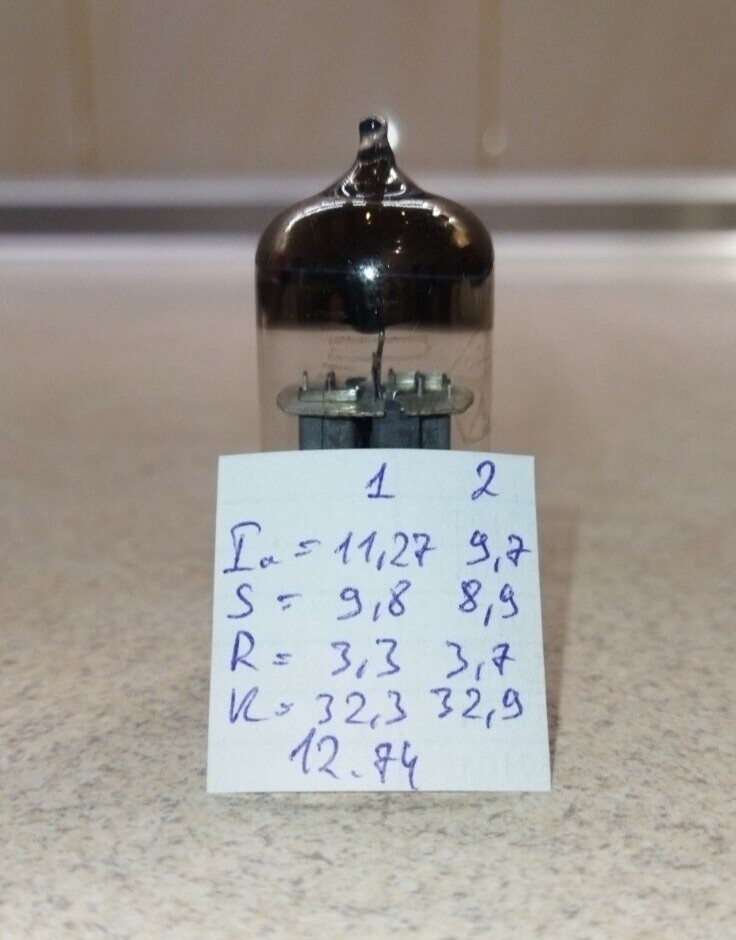 1 2
Ia = 11,27 9,7
S = 9,8 8,9
R = 3,3 3,7
K = 32,3 32,9
12.74